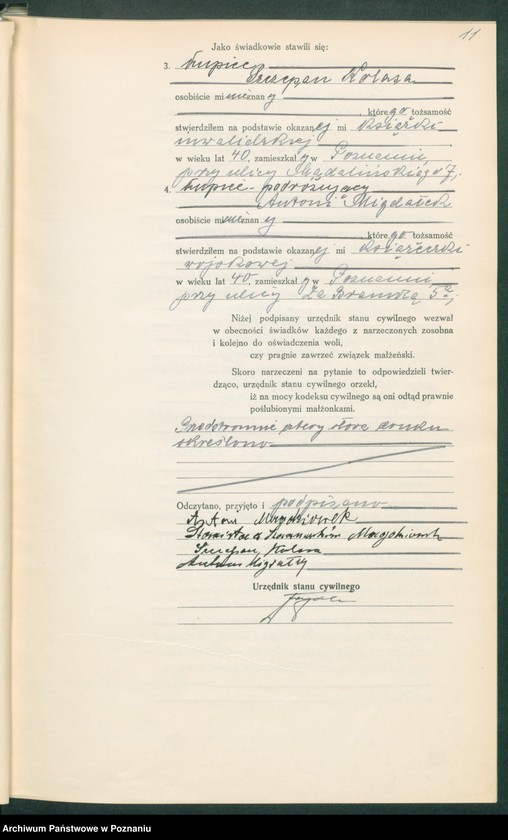 11
Jako świadkowie stawili się:
3. kupiec
Szczepan Kolasa
osobiście mi nieznany
, którego tożsamość
stwierdziłem na podstawie okazanej mi książki
inwalidzkiej
w wieku lat 40, zamieszkały w Poznaniu,
przy ulicy Magdalińskiego 7.
4. kupiec-podróżujący
Antoni Migdałek
osobiście mi nieznany
, którego tożsamość
stwierdziłem na podstawie okazanej mi książeczki
wojskowej
w wieku lat 40, zamieszkały w Poznaniu
przy ulicy Za Bramką
Niżej podpisany urzędnik stanu cywilnego wezwał
w obecności świadków każdego z narzeczonych zosobna
i kolejno do oświadczenia woli,
czy pragnie zawrzeć związek małżeński.
Skoro narzeczeni na pytanie to odpowiedzieli twier-
dząco, urzędnik stanu cywilnego orzekł,
iż na mocy kodeksu cywilnego są oni odtąd prawnie
poślubionymi małżonkami.
Przedstronnie cztery słowa druku
określono
Odczytano, przyjęto i podpisano
Szczepan Kolasa
Antoni Migdałek
Urzędnik stanu cywilnego
Archiwum Państwowe w Poznaniu